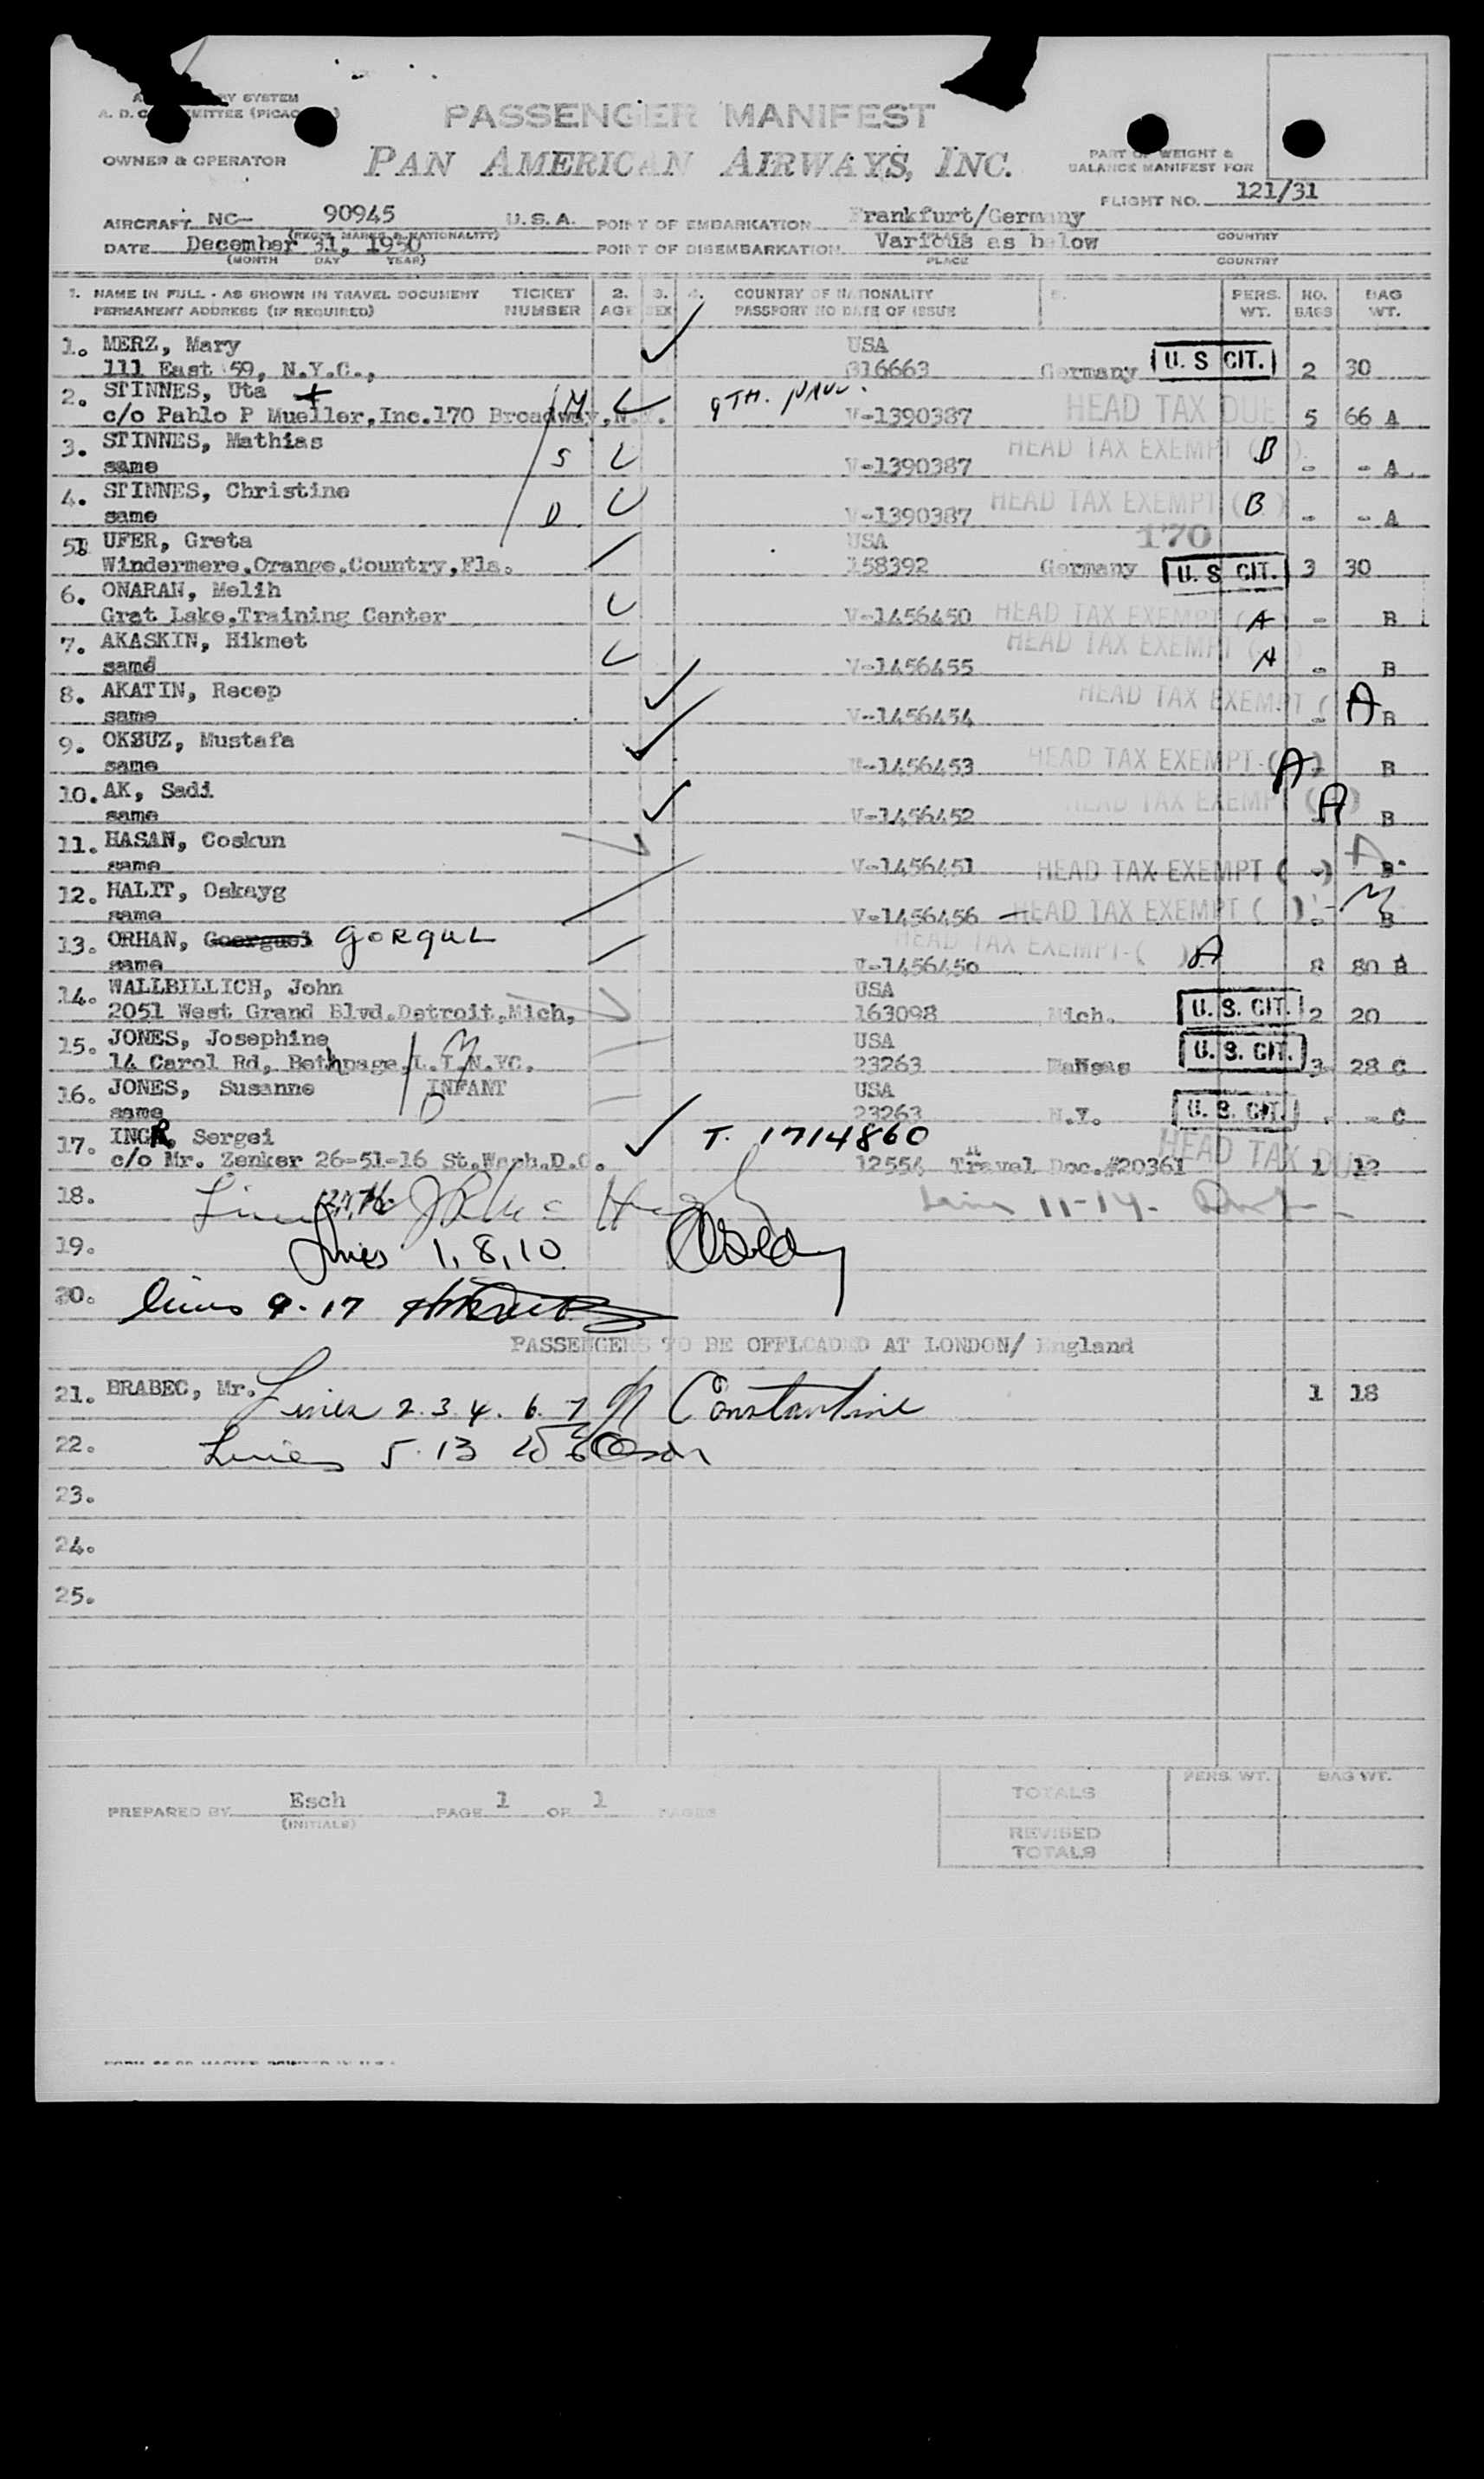 RY SYSTEM
A. D. C MITTEE (PICAO)
PASSENGER MANIFEST
OWNER & OPERATOR PAN AMERICAN AIRWAYS, INC.
PART OF WEIGHT &
BALANCE MANIFEST FOR
FLIGHT NO. 121/31
AIRCRAFT NC- 90945 U.S.A. POINT OF EMBARKATION Frankfurt/Germany
(REGN. MARKS & NATIONALITY) COUNTRY
DATE December 31, 1950 POINT OF DISEMBARKATION Various as below
(MONTH DAY YEAR) PLACE COUNTRY
1. NAME IN FULL - AS SHOWN IN TRAVEL DOCUMENT TICKET 2. 3. 4. COUNTRY OF NATIONALITY 5. PERS. NO. BAG
PERMANENT ADDRESS (IF REQUIRED) NUMBER AGE SEX PASSPORT NO DATE OF ISSUE WT. BAGS WT.
1. MERZ, Mary USA
111 East 59, N.Y.C., 316663 Germany U. S CIT. 2 30
2. STINNES, Uta
c/o Pablo P Mueller,Inc.170 Broadway,N.Y. M V-1390387 HEAD TAX DUE 5 66 A
3. STINNES, Mathias HEAD TAX EXEMPT (B)
same S V-1390387 - - A
4. STINNES, Christine HEAD TAX EXEMPT (B)
same D V-1390387 - - A
5. UFER, Greta USA 170
Windermere,Orange,Country,Fla. 158392 Germany U. S CIT. 3 30
6. ONARAN, Melih
Grat Lake,Training Center V-1456450 HEAD TAX EXEMPT (A - B
7. AKASKIN, Hikmet HEAD TAX EXEMPT
same V-1456455 A - B
8. AKATIN, Recep HEAD TAX EXEMPT ( A
same V-1456454 - B
9. OKSUZ, Mustafa HEAD TAX EXEMPT (A)
same V-1456453 - B
10. AK, Sadi HEAD TAX EXEMPT (A)
same V-1456452 B
11. HASAN, Coskun A
same V-1456451 HEAD TAX EXEMPT (-) B
12. HALIT, Oskayg
same V-1456456 HEAD TAX EXEMPT ( ) - B
13. ORHAN, Goerguei GORGUL HEAD TAX EXEMPT ( ) A
same V-1456450 8 80 B
14. WALLBILLICH, John USA
2051 West Grand Blvd.Detroit,Mich, 163098 Mich. U. S. CIT. 2 20
15. JONES, Josephine USA
14 Carol Rd, Bethpage,L.I.N.YC. M 23263 Kansas U. S. CIT. 3 28 C
16. JONES, Susanne INFANT USA
same D 23263 N.Y. U. S. CIT. - - C
17. INGR, Sergei T. 1714860 HEAD TAX DUE
c/o Mr. Zenker 26-51-16 St.Wash.D.C. 12554 Travel Doc.#20361 1 12
18. 11-14.
19. Lines 1, 8, 10
20. lines 9. 17
PASSENGERS TO BE OFFLOADED AT LONDON/ England
21. BRABEC, Mr. Lines 2. 3. 4. 6. 7 Constantine 1 18
22. Lines 5. 13
23.
24.
25.
PREPARED BY Esch PAGE 1 OF 1 PAGES
(INITIALS)
PERS. WT. BAG WT.
TOTALS
REVISED
TOTALS